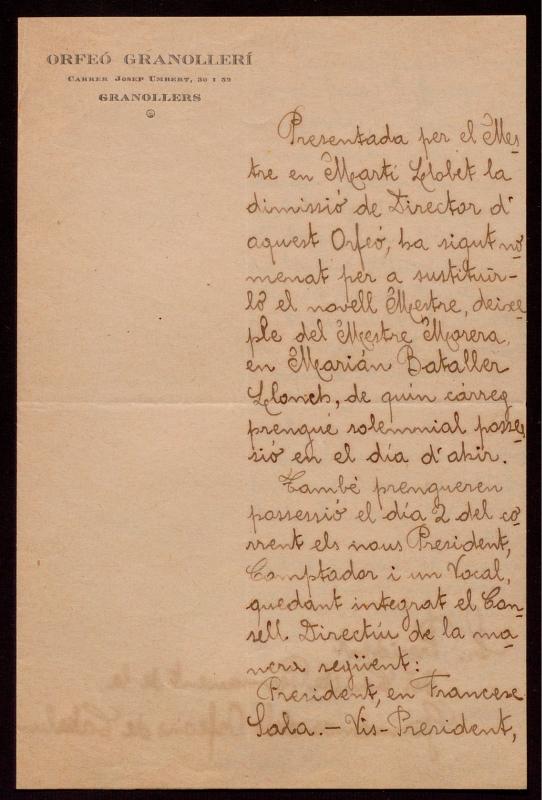 ORFEÓ GRANOLLERÍ
CARRER JOSEP UMBERT, 30 I 32
GRANOLLERS
Presentada per el Mes-
tre en Martí Llobet la
dimissió de Director d'
aquest Orfeó, ha sigut no-
menat per a sustituir-
lo el novell Mestre, deixe-
ple del Mestre Morera,
en Marián Bataller
Llonch, de quín cárreg
prengué solemnial posses-
sió en el día d'ahir.
També prengueren
possessió el día 2 del co-
rrent els nous President,
Comptador i un Vocal,
quedant integrat el Con-
sell Directíu de la ma-
nera següent:
President, en Francesc
Sala.— Vis-President,